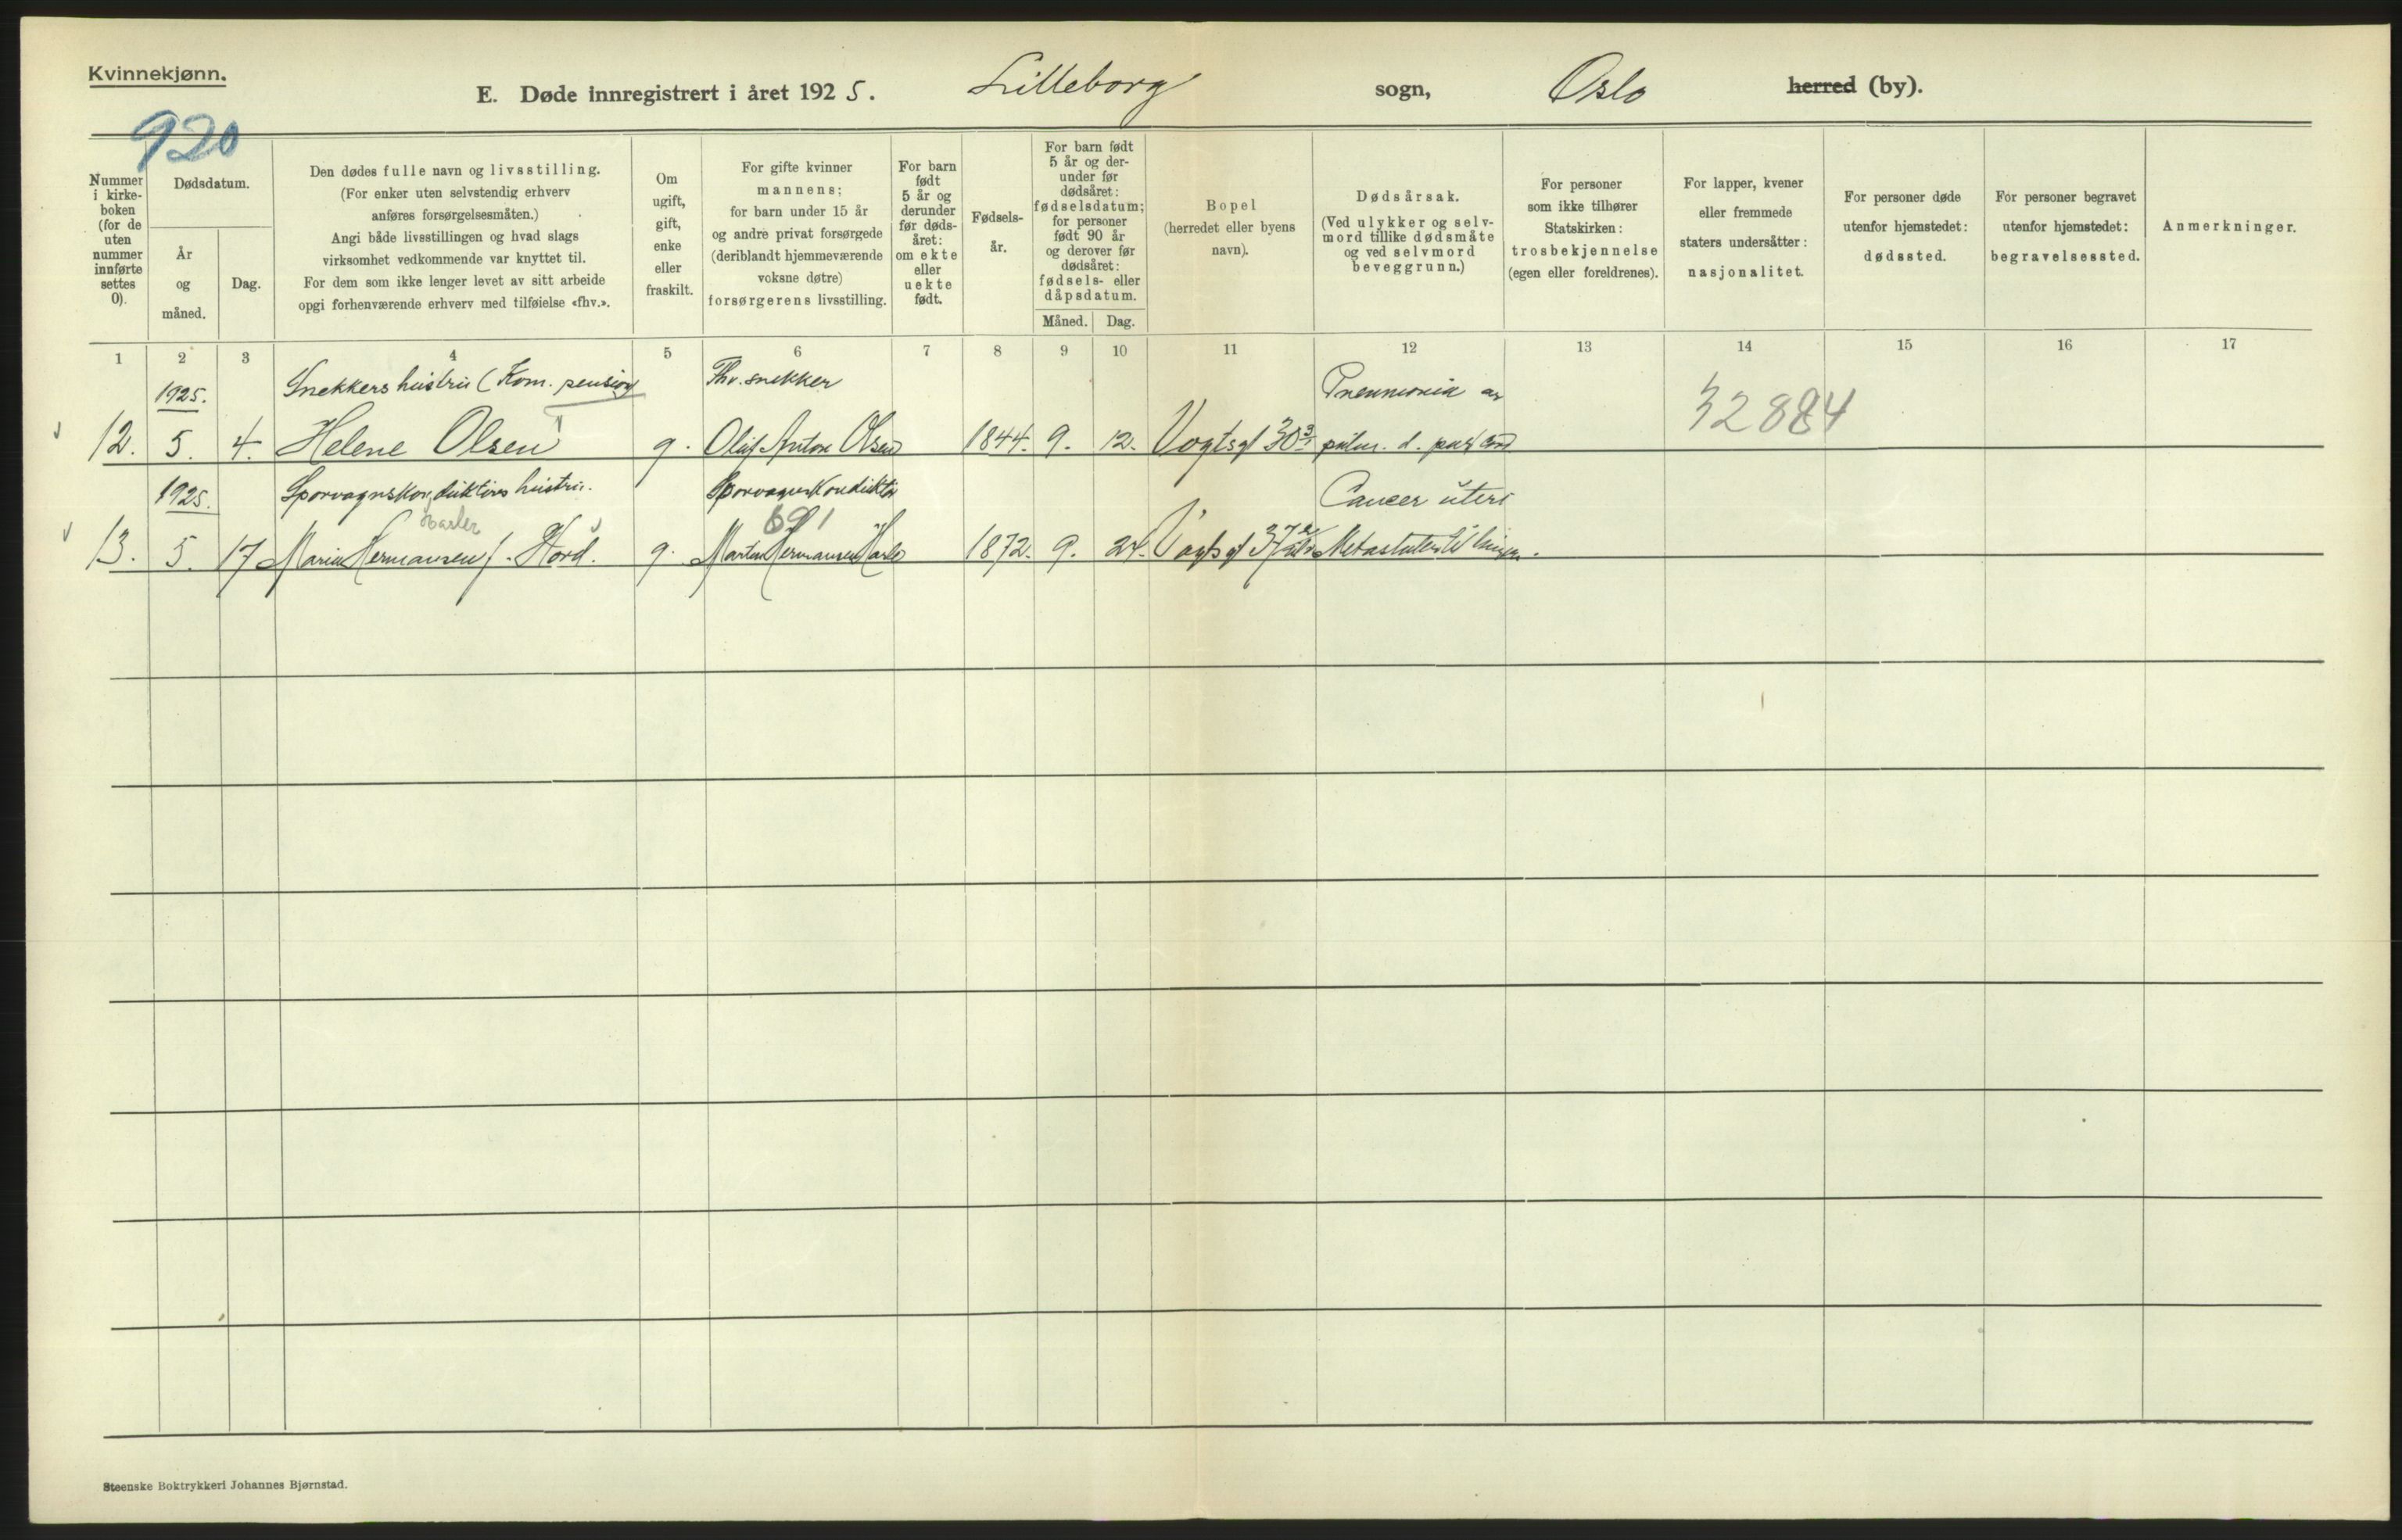 Kvinnekjønn.
E. Døde innregistrert i året 1925. Lilleborg sogn, Oslo herred (by).
920
Nummer i kirke-boken (for de uten nummer innførte settes 0).
Dødsdatum.
År og måned.
Dag.
Den dødes fulle navn og livsstilling.
(For enker uten selvstendig erhverv
anføres forsørgelsesmåten.)
Angi både livsstillingen og hvad slags
virksomhet vedkommende var knyttet til.
For dem som ikke lenger levet av sitt arbeide
opgi forhenværende erhverv med tilføielse «fhv.».
Om ugift, gift, enke eller fraskilt.
For gifte kvinner
mannens;
for barn under 15 år
og andre privat forsørgede
(deriblandt hjemmeværende
voksne døtre)
forsørgerens livsstilling.
For barn født 5 år og derunder før døds-året: om ekte eller uekte født.
Fødsels-år.
For barn født
5 år og der-
under før
dødsåret:
fødselsdatum;
for personer
født 90 år
og derover før
dødsåret:
fødsels- eller
dåpsdatum.
Måned. Dag.
Bopel
(herredet eller byens
navn).
Dødsårsak.
(Ved ulykker og selv-
mord tillike dødsmåte
og ved selvmord
beveggrunn.)
For personer
som ikke tilhører
Statskirken:
trosbekjennelse
(egen eller foreldrenes).
For lapper, kvener
eller fremmede
staters undersåtter:
nasjonalitet.
For personer døde
utenfor hjemstedet:
dødssted.
For personer begravet
utenfor hjemstedet:
begravelsessted.
Anmerkninger.
1 2 3 4 5 6 7 8 9 10 11 12 13 14 15 16 17
1925. Snekkers hustru (Kom. pension) Fhv. snekker Pneumonia
32884
12. 5. 4. Helene Olsen g. Oluf Anton Olsen 1844. 9. 12. Vogtsgt 30
1925. Sporvognskonduktörs hustru. Sporvognskonduktör Cancer uteri
Harler
691
13. 5. 17 Marie Hermansen f. Hord. g. Martin Hermansen 1872. 9. 24. Vogtsgt 37
Steenske Boktrykkeri Johannes Bjørnstad.